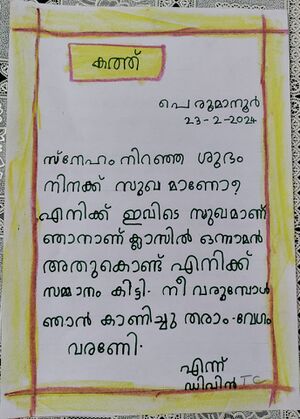 കത്ത്
പെരുമാനൂർ
23-2-2024
സ്നേഹം നിറഞ്ഞ ശുഭം
നിനക്ക് സുഖമാണോ?
എനിക്ക് ഇവിടെ സുഖമാണ്
ഞാനാണ് ക്ലാസിൽ ഒന്നാമൻ
അതുകൊണ്ട് എനിക്ക്
സമ്മാനം കിട്ടി. നീ വരുമ്പോൾ
ഞാൻ കാണിച്ചു തരാം. വേഗം
വരണേ.
എന്ന്
ഡിവിൻ TC